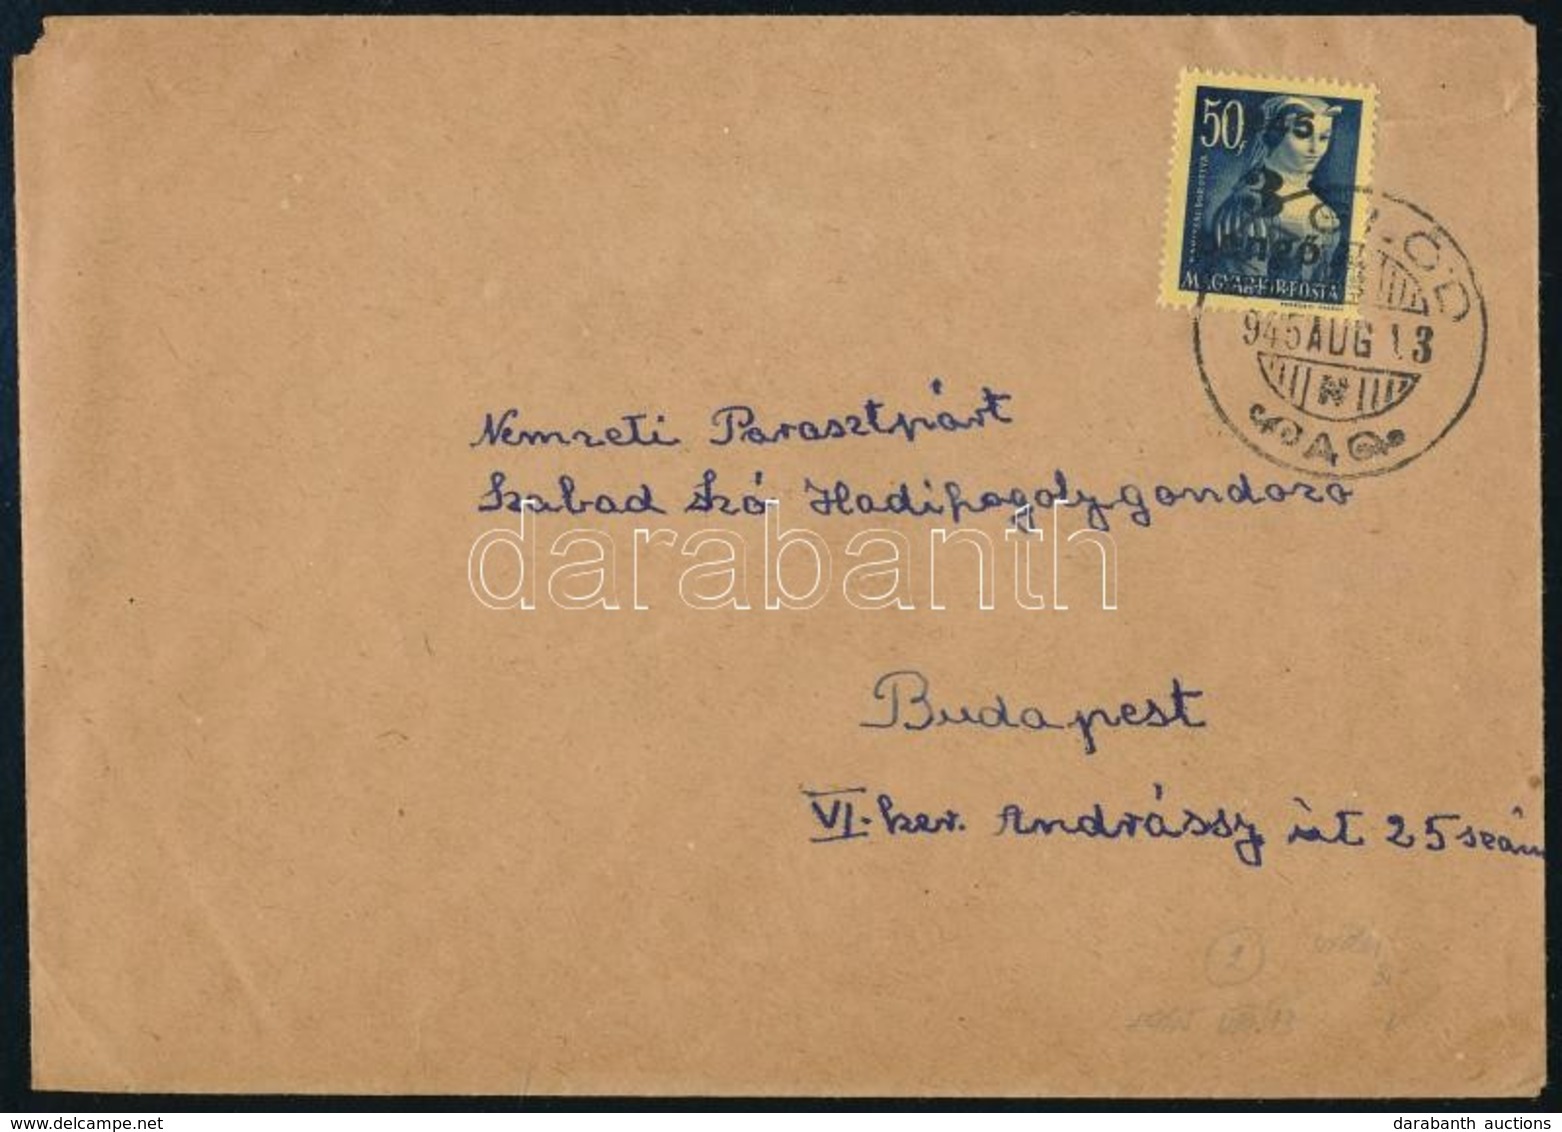 50f
1945.
3
pengő
KANIZSAI DOROTTYA
MAGYAR KIR. POSTA
945 AUG 13
N
Nemzeti Parasztpárt
Szabad Szó Hadifogolygondozo
darabanth
Budapest
VI. ker. Andrássy út 25 szám
1
delcampe.net
darabanth auctions